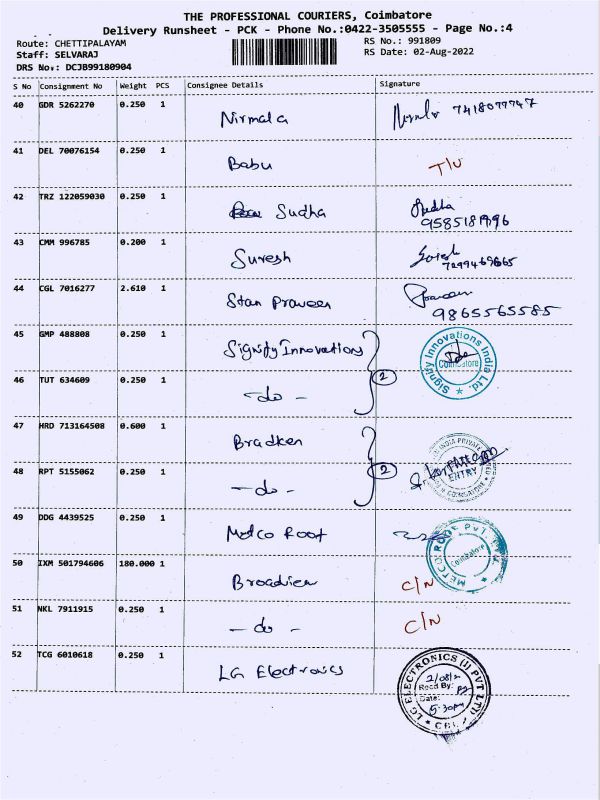 THE PROFESSIONAL COURIERS, Coimbatore
Delivery Runsheet - PCK - Phone No.:0422-3505555 - Page No.:4
Route: CHETTIPALAYAM RS No.: 991809
Staff: SELVARAJ RS Date: 02-Aug-2022
DRS No.: DCJB99180904
S No Consignment No Weight PCS Consignee Details Signature
40 GDR 5262270 0.250 1 Nirmala 7418077747
41 DEL 70076154 0.250 1 Babu T/U
42 TRZ 122059030 0.250 1 Sudha
43 CMM 996785 0.200 1 Suresh
44 CGL 7016277 2.610 1 Stan Praveen 9865565585
45 GMP 488808 0.250 1 Signify Innovations Signify Innovations India Ltd. Coimbatore
2
46 TUT 634609 0.250 1 - do -
47 HRD 713164508 0.600 1 Bradken
2 ENTRY
48 RPT 5155062 0.250 1 - do -
49 DDG 4439525 0.250 1 Metco Roof Coimbatore
50 IXM 501794606 180.000 1 C/N
51 NKL 7911915 0.250 1 - do - C/N
52 TCG 6010618 0.250 1 LG Electronics LG ELECTRONICS (I) PVT LTD
Recd By:
Date:
5.30PM